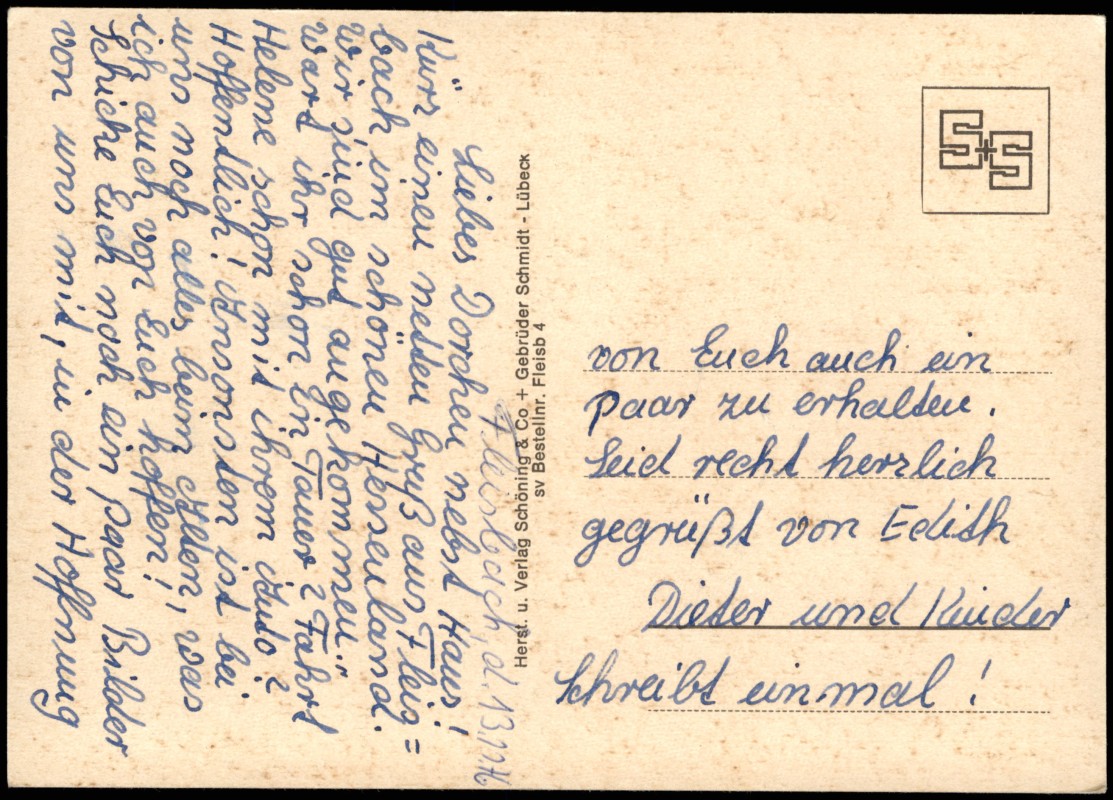 Fleisbach, d. 13.
Liebes Dorchen nebst Haus!
Kurz einen netten Gruß aus Fleis=
bach im schönen Hessenland.
Wir sind gut angekommen.
Wart ihr schon in Tauer? Fährt
Helene schon mit ihrem Auto?
Hoffentlich! Ansonsten ist bei
uns noch alles beim Alten, was
ich auch von Euch hoffen!
Schicke Euch noch ein paar Bilder
von uns mit, in der Hoffnung
Herst. u. Verlag Schöning & Co + Gebrüder Schmidt - Lübeck
sv Bestellnr. Fleisb 4
S+S
von Euch auch ein
paar zu erhalten.
Seid recht herzlich
gegrüßt von Edith
Dieter und Kinder
Schreibt einmal!